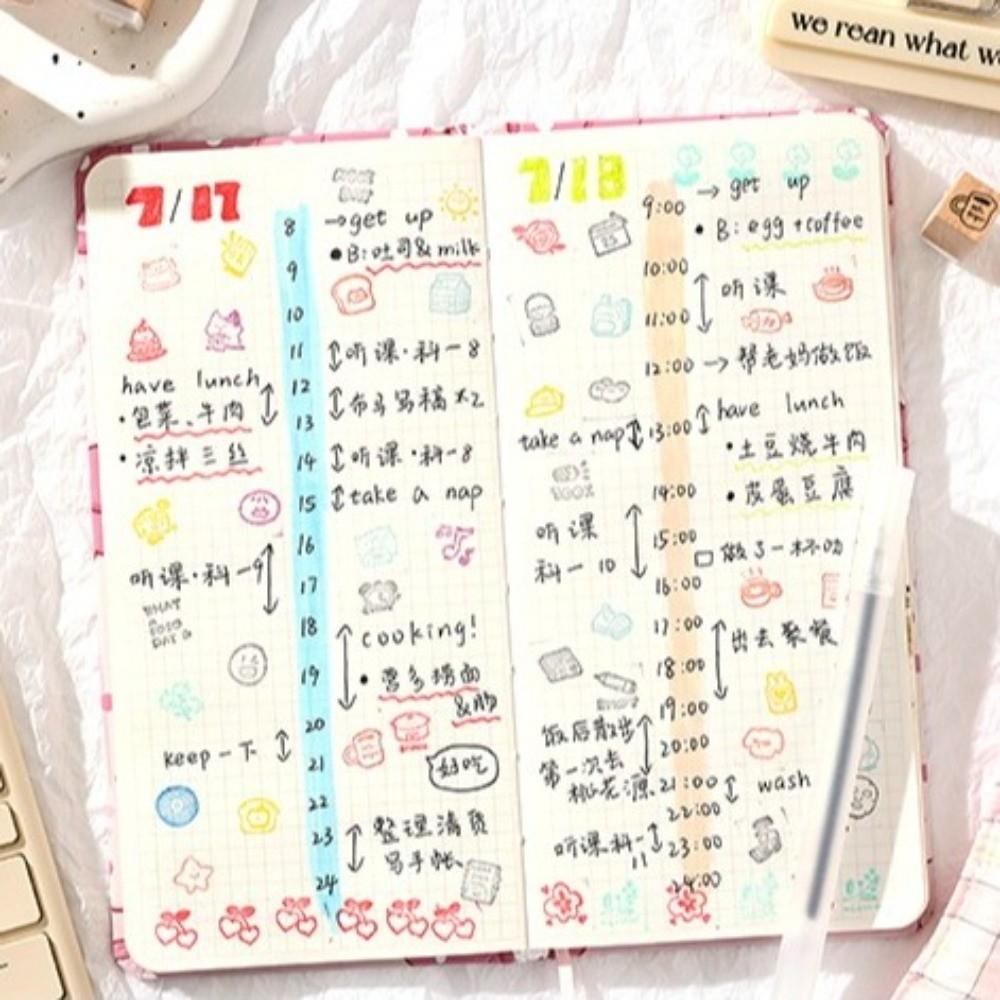 we rean what we
7/17
8
→get up
•B:吐司& milk
9
10
11
听课·科一8
have lunch
12
•包菜、牛肉
13
•凉拌三丝
14
听课·科一8
15
take a nap
16
听课·科一9
17
WHAT
A
GOOD
DAY
18
cooking!
19
•营多捞面
&肠
20
keep一下
21
好吃
22
23
整理清货
写手帐
24
7/18
9:00
→ get up
•B:egg+coffee
10:00
听课
11:00
12:00
→帮老妈做饭
have lunch
take a nap
13:00
•土豆烧牛肉
14:00
•皮蛋豆腐
听课
15:00
科一10
做了一杯奶
16:00
17:00
出去聚餐
18:00
19:00
饭后散步
20:00
第一次去
桃花源
21:00
wash
22:00
听课科一
11
23:00
24:00